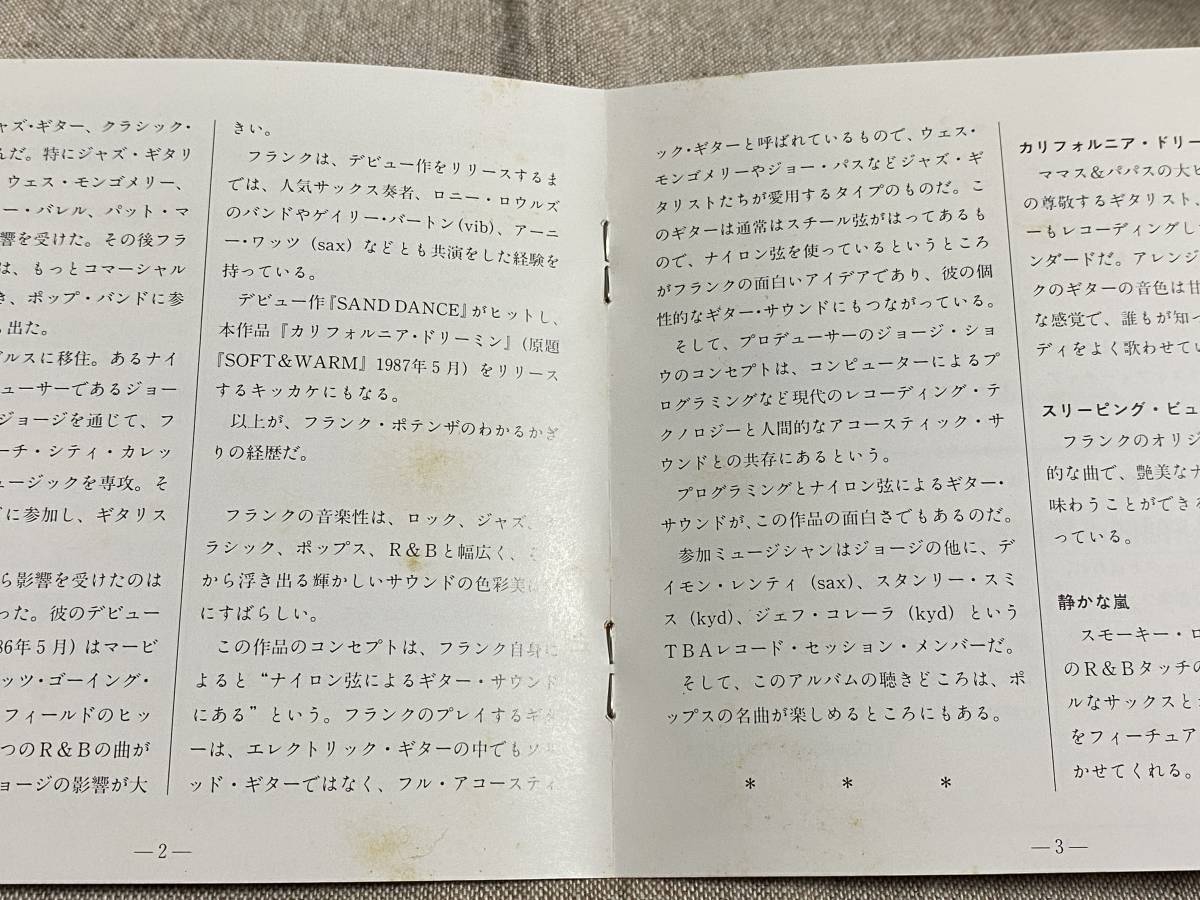 ャズ・ギター、クラシック・
んだ。特にジャズ・ギタリ
ウェス・モンゴメリー、
ー・バレル、パット・マ
響を受けた。その後フラ
は、もっとコマーシャル
き、ポップ・バンドに参
ら出た。
ゼルスに移住。あるナイ
ューサーであるジョー
ジョージを通じて、フ
ーチ・シティ・カレッ
ュージックを専攻。そ
に参加し、ギタリス
ら影響を受けたのは
った。彼のデビュー
86年5月)はマービ
ッツ・ゴーイング・
フィールドのヒッ
つのR&Bの曲が
ョージの影響が大
—2—
きい。
フランクは、デビュー作をリリースするま
では、人気サックス奏者、ロニー・ロウルズ
のバンドやゲイリー・バートン(vib)、アーニ
ー・ワッツ (sax) などとも共演をした経験を
持っている。
デビュー作『SAND DANCE』がヒットし、
本作品『カリフォルニア・ドリーミン』(原題
『SOFT&WARM』1987年5月) をリリース
するキッカケにもなる。
以上が、フランク・ポテンザのわかるかぎ
りの経歴だ。
フランクの音楽性は、ロック、ジャズ、
ラシック、ポップス、R&Bと幅広く、
から浮き出る輝かしいサウンドの色彩美は
にすばらしい。
この作品のコンセプトは、フランク自身に
よると“ナイロン弦によるギター・サウンド
にある”という。フランクのプレイするギタ
ーは、エレクトリック・ギターの中でもソリ
ッド・ギターではなく、フル・アコースティ
ック・ギターと呼ばれているもので、ウェス・
モンゴメリーやジョー・パスなどジャズ・ギ
タリストたちが愛用するタイプのものだ。こ
のギターは通常はスチール弦がはってあるも
ので、ナイロン弦を使っているというところ
がフランクの面白いアイデアであり、彼の個
性的なギター・サウンドにもつながっている。
そして、プロデューサーのジョージ・ショ
ウのコンセプトは、コンピューターによるプ
ログラミングなど現代のレコーディング・テ
クノロジーと人間的なアコースティック・サ
ウンドとの共存にあるという。
プログラミングとナイロン弦によるギター・
サウンドが、この作品の面白さでもあるのだ。
参加ミュージシャンはジョージの他に、デ
イモン・レンティ (sax)、スタンリー・スミ
ス (kyd)、ジェフ・コレーラ (kyd) という
TBAレコード・セッション・メンバーだ。
そして、このアルバムの聴きどころは、ポ
ップスの名曲が楽しめるところにもある。
* * *
カリフォルニア・ドリー
ママス&パパスの大ヒ
の尊敬するギタリスト、
ーもレコーディングし
ンダードだ。アレンジ
クのギターの音色は甘
な感覚で、誰もが知っ
ディをよく歌わせてい
スリーピング・ビュ
フランクのオリジ
的な曲で、艶美なナ
味わうことができる
っている。
静かな嵐
スモーキー・ロ
のR&Bタッチの
ルなサックスと
をフィーチュア
かせてくれる。
—3—